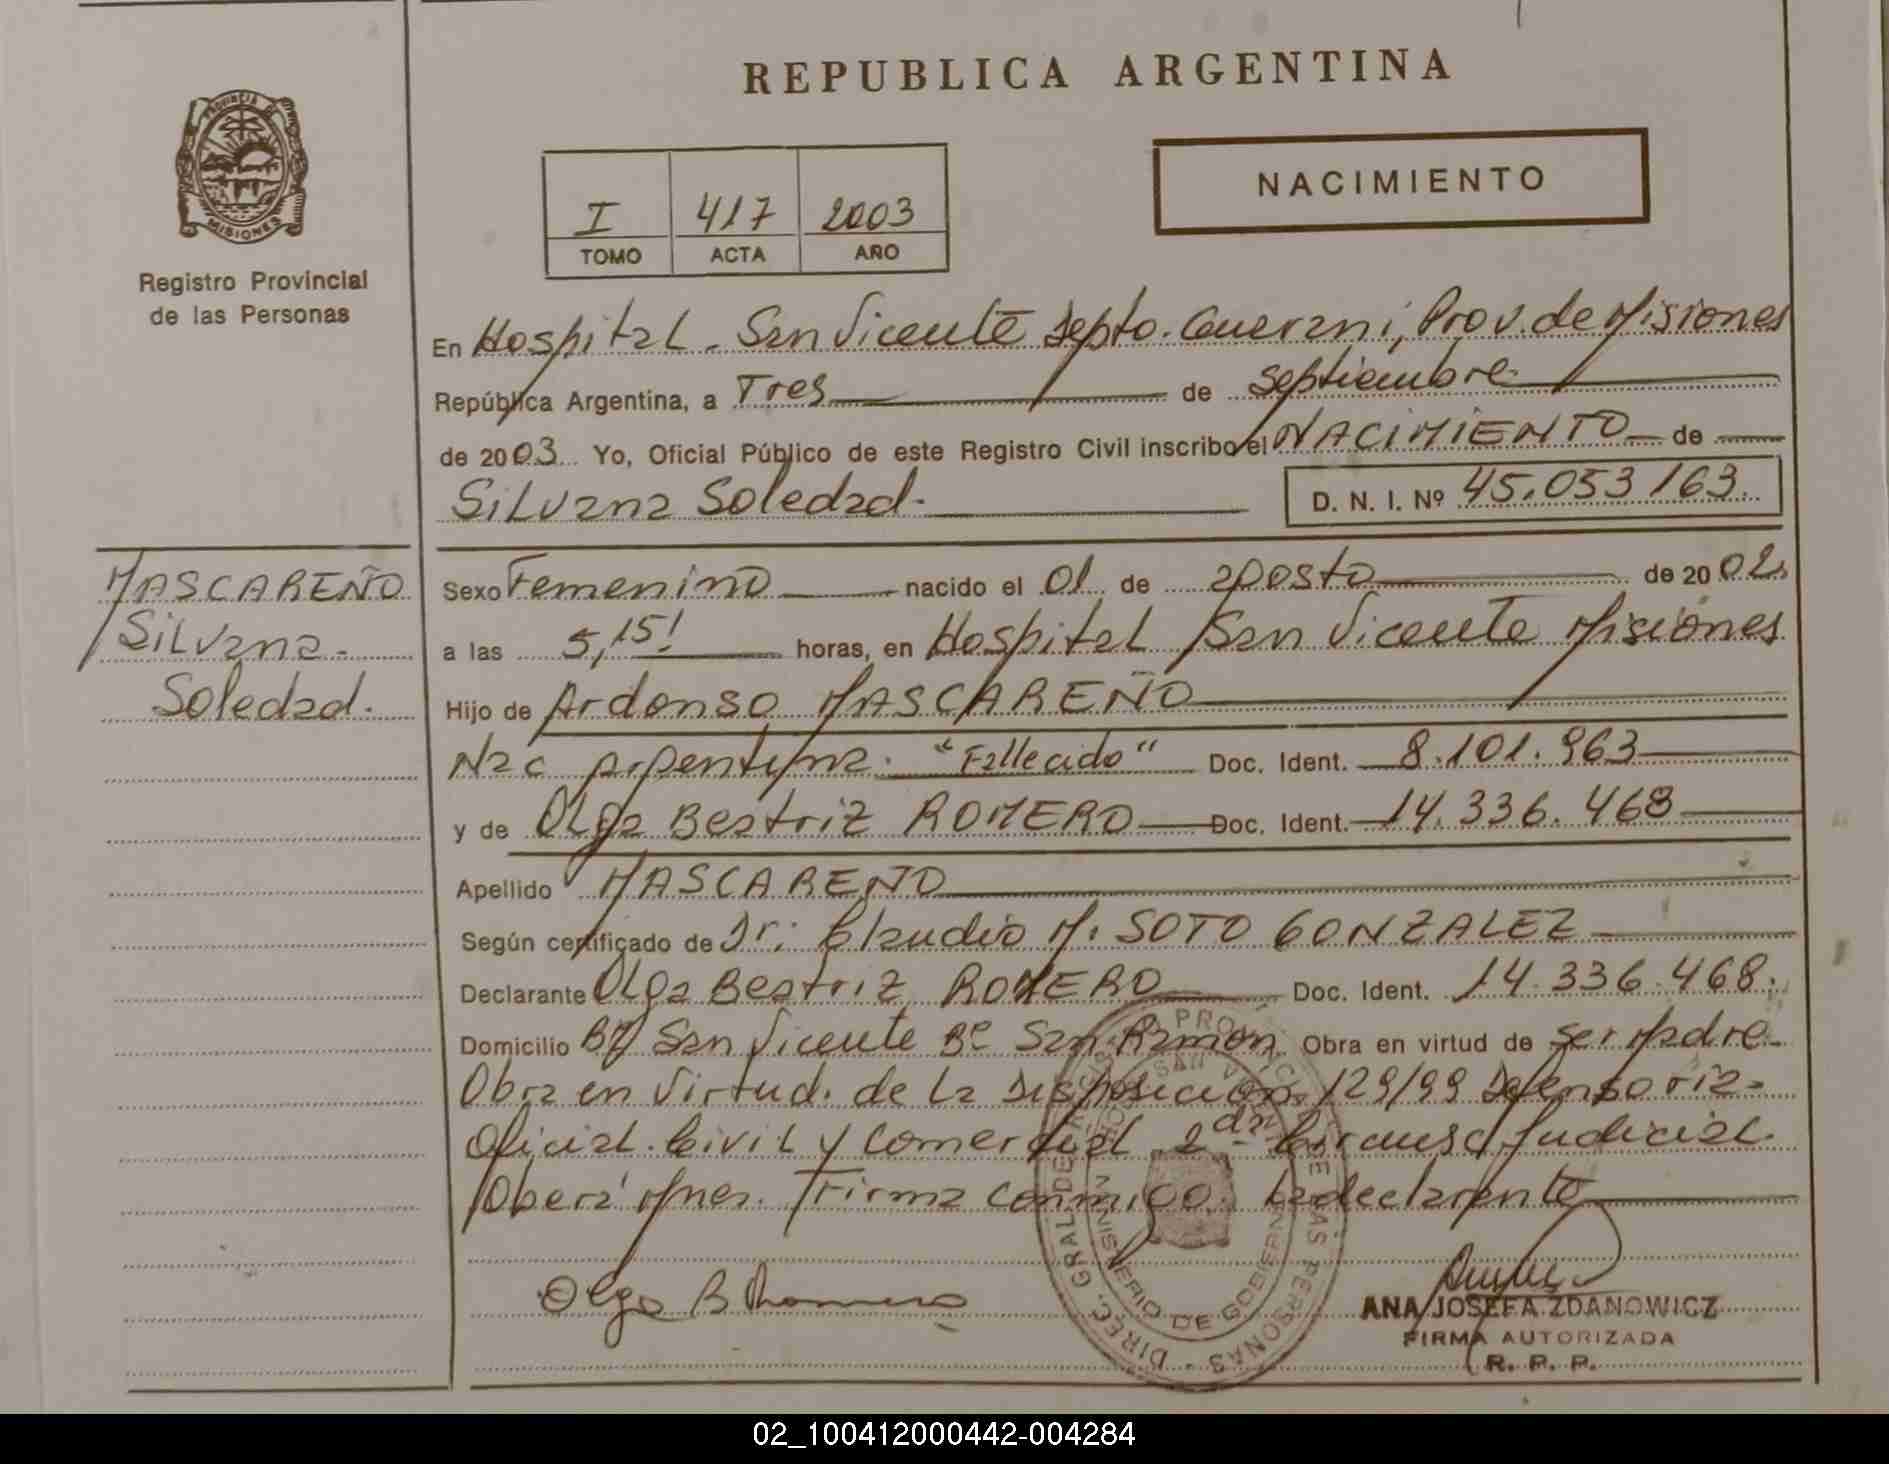 REPUBLICA ARGENTINA
PROVINCIA DE MISIONES
Registro Provincial
de las Personas
I 417 2003
TOMO ACTA AÑO
NACIMIENTO
En Hospital - San Vicente Depto. Guarani, Prov. de Misiones
República Argentina, a Tres de Septiembre
de 2003 Yo, Oficial Público de este Registro Civil inscribo el NACIMIENTO de
Silvana Soledad. D. N. I. Nº 45.053163.
MASCAREÑO
Silvana
Soledad.
Sexo Femenino nacido el 01 de agosto de 2002
a las 5,15! horas, en Hospital San Vicente Misiones
Hijo de Ardonso MASCAREÑO
Nac Argentina. "Fallecido" Doc. Ident. 8.101.963
y de Olga Beatriz ROMERO Doc. Ident. 14.336.468
Apellido MASCAREÑO
Según certificado de Dr: Claudio M. SOTO GONZALEZ
Declarante Olga Beatriz ROMERO Doc. Ident. 14.336.468.
Domicilio San Vicente Bº San Ramon Obra en virtud de ser Madre
Obra en virtud. de la Disposicion 129/99 Defensoria
Oficial. Civil y Comercial 2da Circunsc Judicial.
Obera Mnes. Firma conmigo. La declarante
Olga B Romero
ANA JOSEFA ZDANOWICZ
FIRMA AUTORIZADA
R. P. P.
DIREC. GRAL. DE PERSONAS
MINISTERIO DE GOBIERNO
02_100412000442-004284